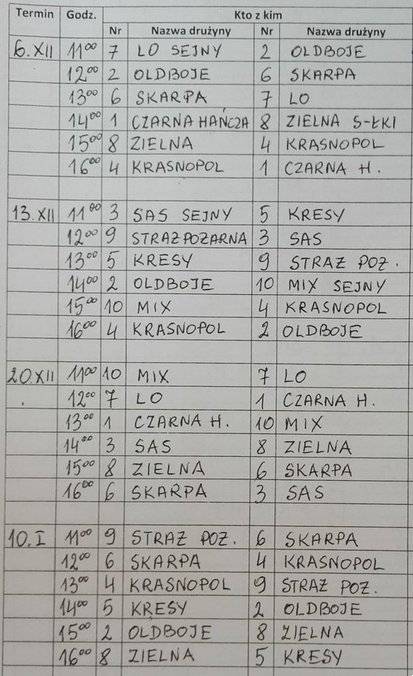 Termin Godz. Kto z kim
Nr Nazwa drużyny Nr Nazwa drużyny
6.XII 11⁰⁰ 7 LO SEJNY 2 OLDBOJE
12⁰⁰ 2 OLDBOJE 6 SKARPA
13⁰⁰ 6 SKARPA 7 LO
14⁰⁰ 1 CZARNA HAŃCZA 8 ZIELNA S-ŁKI
15⁰⁰ 8 ZIELNA 4 KRASNOPOL
16⁰⁰ 4 KRASNOPOL 1 CZARNA H.
13.XII 11⁰⁰ 3 SAS SEJNY 5 KRESY
12⁰⁰ 9 STRAŻ POŻARNA 3 SAS
13⁰⁰ 5 KRESY 9 STRAŻ POŻ.
14⁰⁰ 2 OLDBOJE 10 MIX SEJNY
15⁰⁰ 10 MIX 4 KRASNOPOL
16⁰⁰ 4 KRASNOPOL 2 OLDBOJE
20.XII 11⁰⁰ 10 MIX 7 LO
12⁰⁰ 7 LO 1 CZARNA H.
13⁰⁰ 1 CZARNA H. 10 MIX
14⁰⁰ 3 SAS 8 ZIELNA
15⁰⁰ 8 ZIELNA 6 SKARPA
16⁰⁰ 6 SKARPA 3 SAS
10.I 11⁰⁰ 9 STRAŻ POŻ. 6 SKARPA
12⁰⁰ 6 SKARPA 4 KRASNOPOL
13⁰⁰ 4 KRASNOPOL 9 STRAŻ POŻ.
14⁰⁰ 5 KRESY 2 OLDBOJE
15⁰⁰ 2 OLDBOJE 8 ZIELNA
16⁰⁰ 8 ZIELNA 5 KRESY